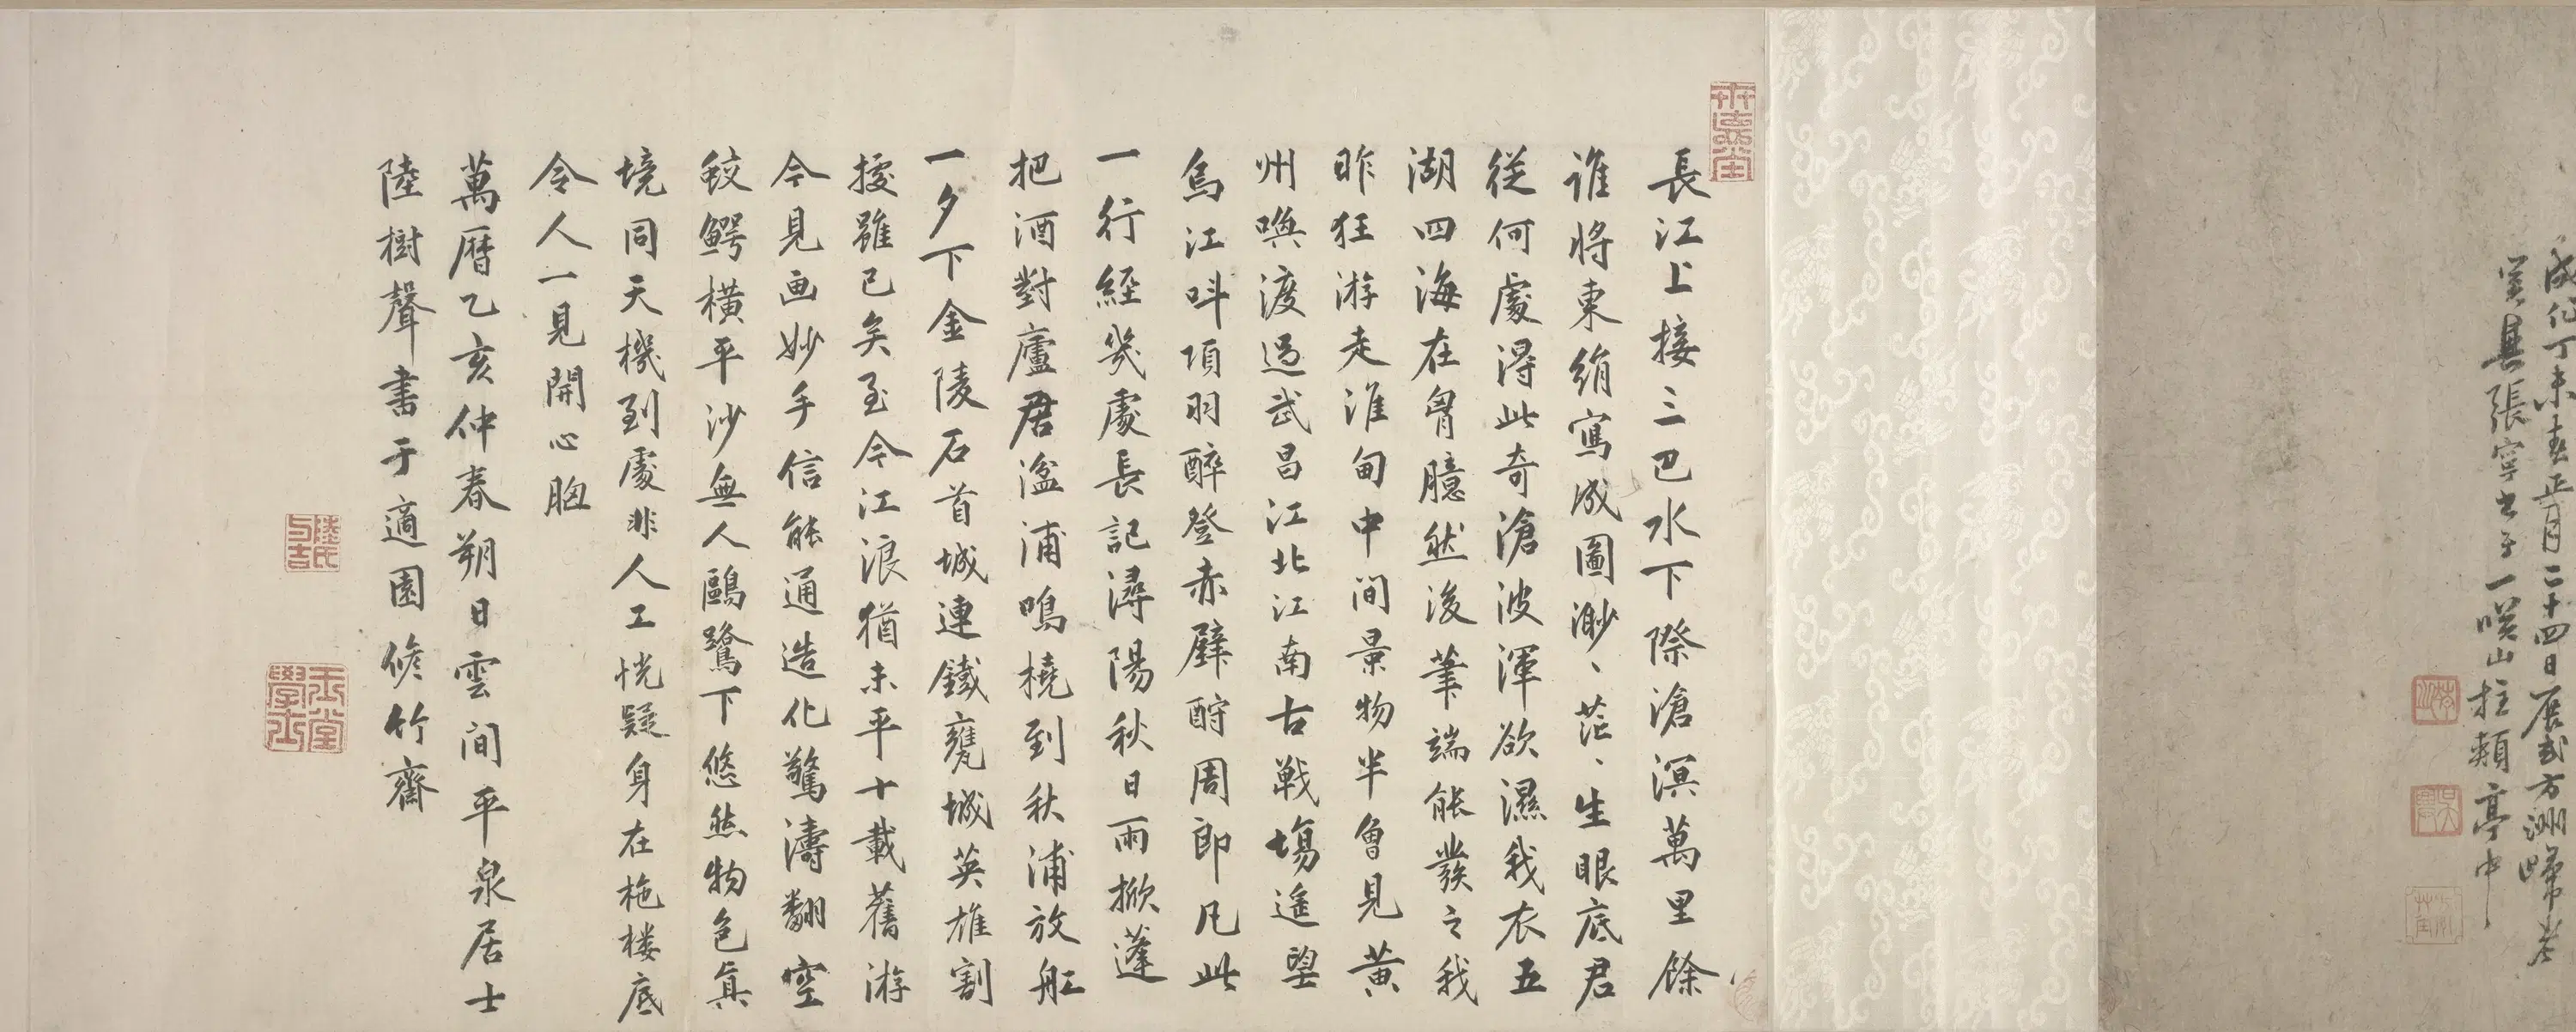 成化丁未春正月二十四日展玩方洲歸老
吳興張寧書于一咲山拄頰亭中
長江上接三巴水下際滄溟萬里餘
誰將東絹寫成圖渺、茫、生眼底君
從何處得此奇滄波渾欲濕我衣五
湖四海在胷臆然後筆端能發之我
昨狂游走淮甸中間景物半曾見黄
州喚渡過武昌江北江南古戰場遥望
烏江呌項羽醉登赤壁酹周郎凡此
一行經幾處長記潯陽秋日雨掀蓬
把酒對廬君湓浦鳴橈到秋浦放舡
一夕下金陵石首城連鐵甕城英雄割
據雖已矣至今江浪猶未平十載舊游
今見画妙手信能通造化驚濤翻空
鮫鰐橫平沙無人鷗鷺下悠然物色真
境同天機到處非人工恍疑身在柁楼底
令人一見開心胸
萬曆乙亥仲春朔日雲間平泉居士
陸樹聲書于適園修竹齋
陸氏與吉
玉堂學士